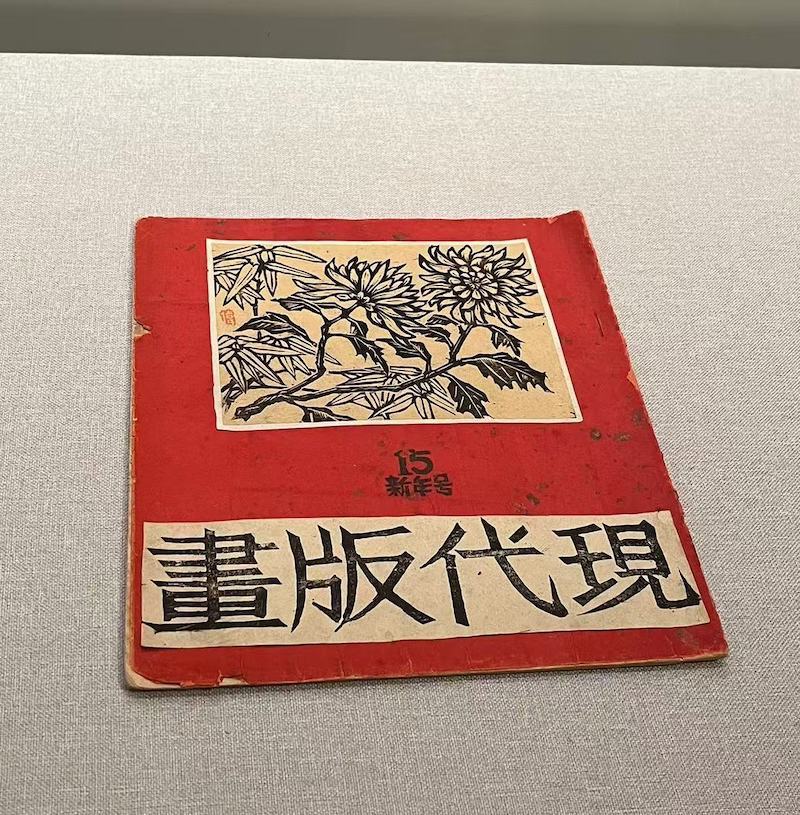 15
新年号
現代版畫